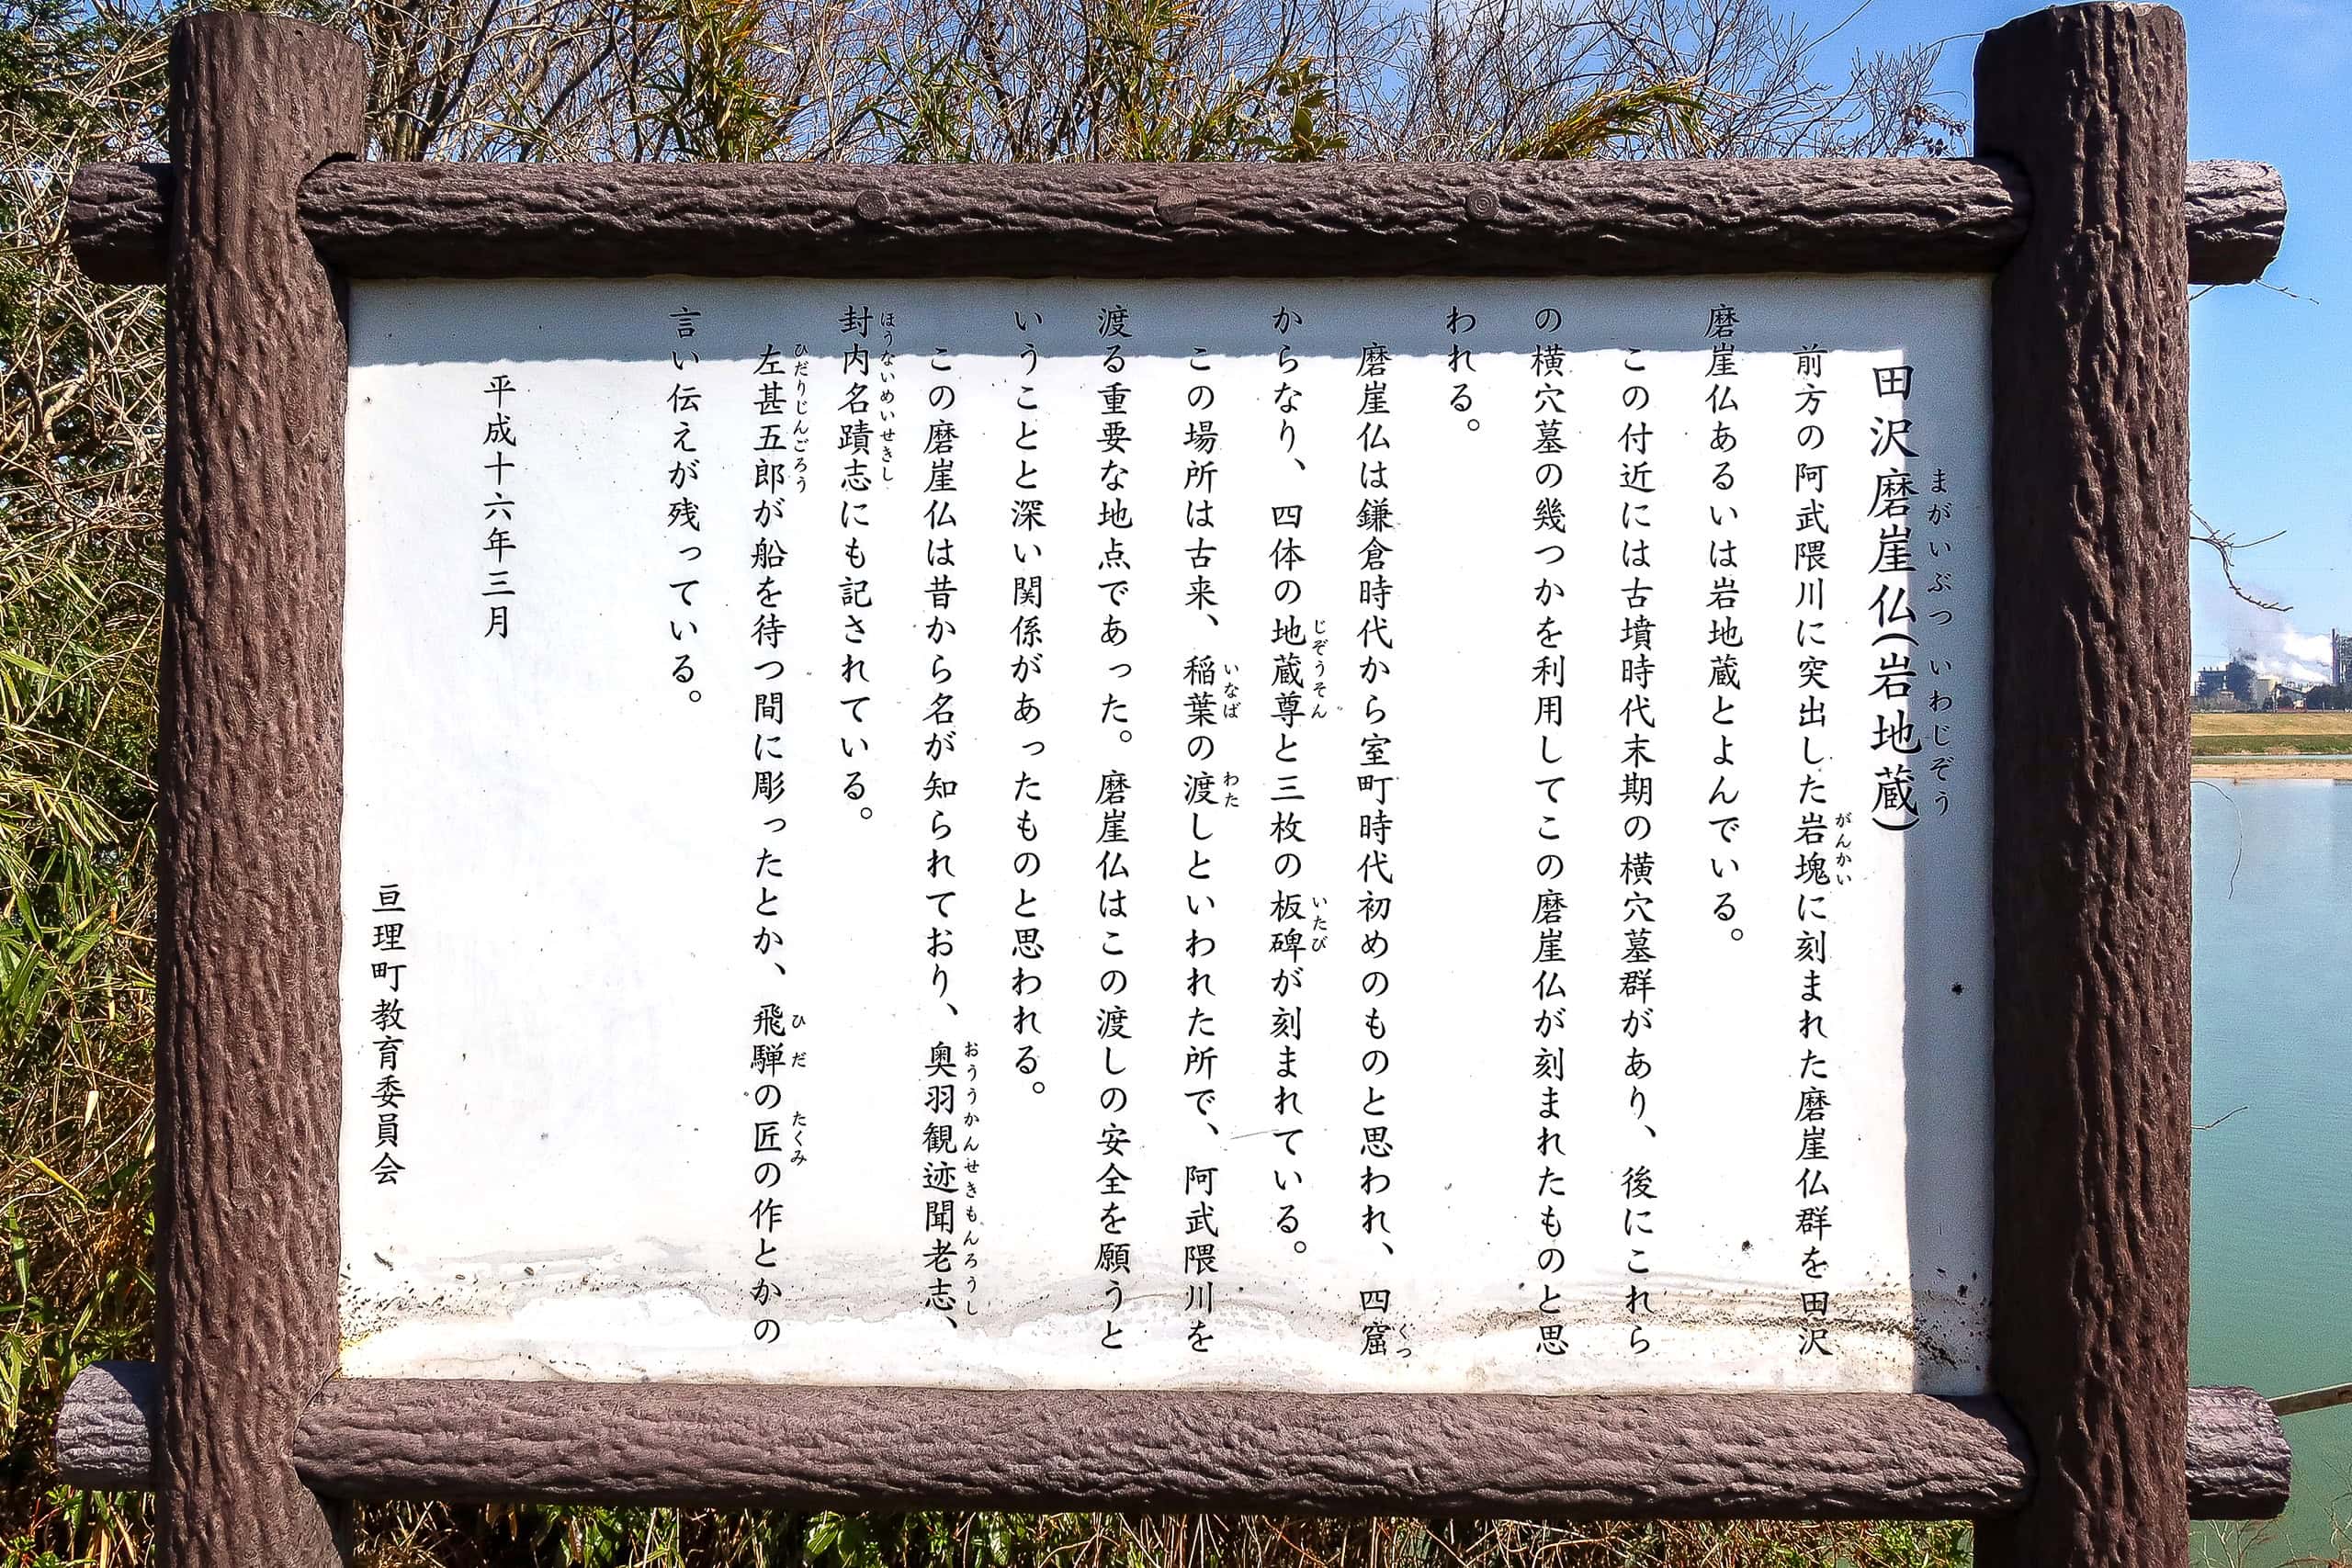 田沢磨崖仏(岩地蔵)
まがいぶつ いわじぞう
前方の阿武隈川に突出した岩塊に刻まれた磨崖仏群を田沢
がんかい
磨崖仏あるいは岩地蔵とよんでいる。
この付近には古墳時代末期の横穴墓群があり、後にこれら
の横穴墓の幾つかを利用してこの磨崖仏が刻まれたものと思
われる。
磨崖仏は鎌倉時代から室町時代初めのものと思われ、四窟
くつ
からなり、四体の地蔵尊と三枚の板碑が刻まれている。
じぞうそん いたび
この場所は古来、稲葉の渡しといわれた所で、阿武隈川を
いなば わた
渡る重要な地点であった。磨崖仏はこの渡しの安全を願うと
いうことと深い関係があったものと思われる。
この磨崖仏は昔から名が知られており、奥羽観迹聞老志、
おううかんせきもんろうし
封内名蹟志にも記されている。
ほうないめいせきし
左甚五郎が船を待つ間に彫ったとか、飛騨の匠の作とかの
ひだりじんごろう ひだ たくみ
言い伝えが残っている。
平成十六年三月
亘理町教育委員会